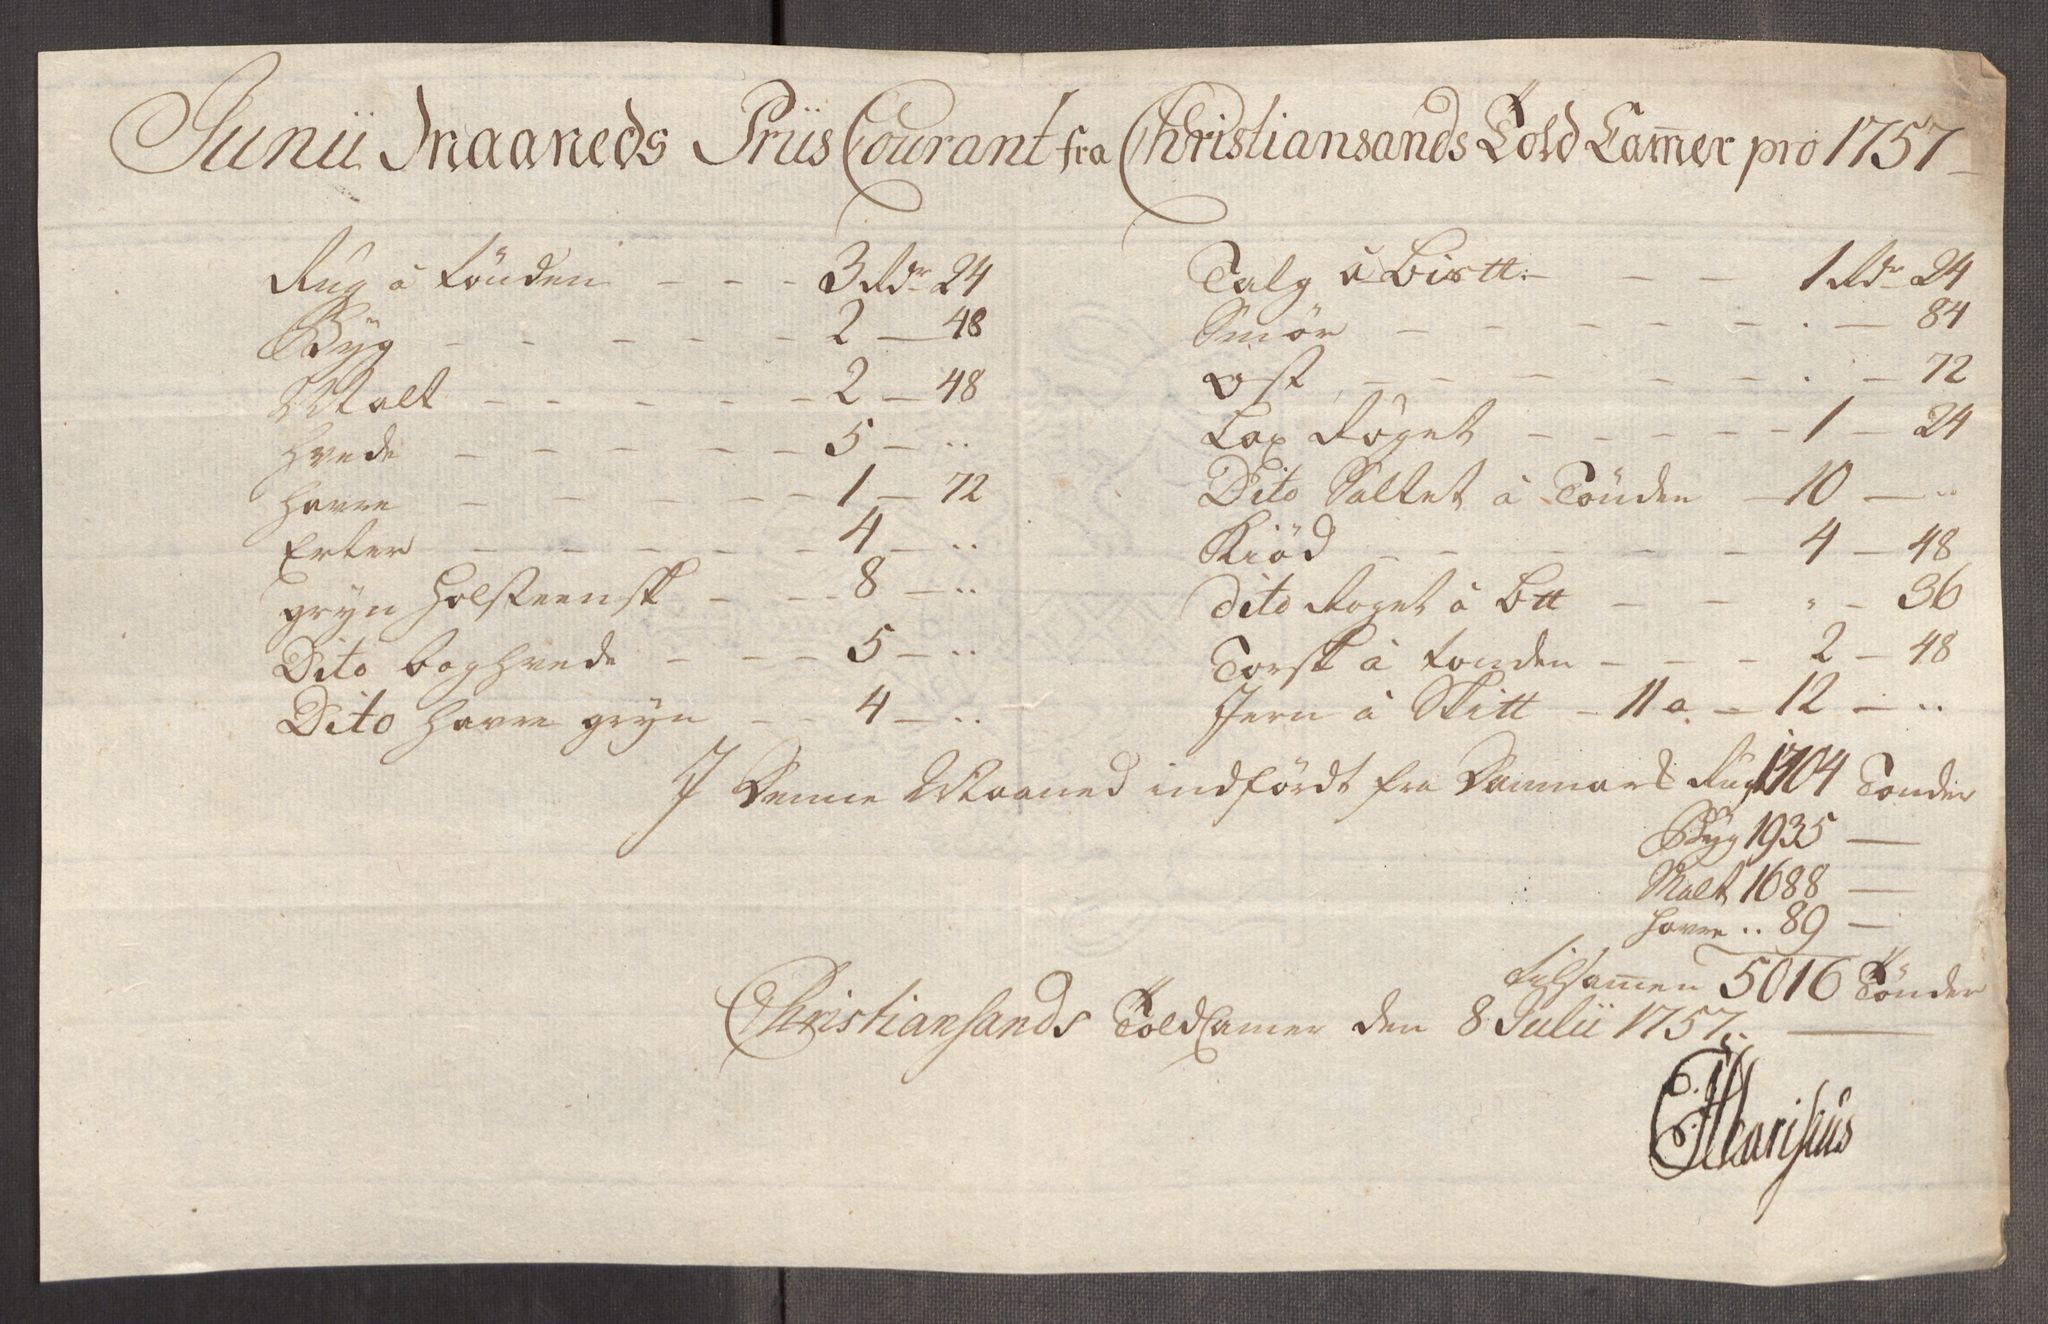 Junii Maaneds Priis Courant fra Christiansands Told Camer pro 1757
Rug a tönden - - - 3 Rdr 24
Byg - - - - - - 2 - 48
Malt - - - - - - 2 - 48
hvede - - - - - - 5 - ..
havre - - - - - - 1 - 72
Erter - - - - - - 4 - ..
gryn Holsteensk - - - 8 - ..
Dito boghvede - - - 5 - ..
Dito havre gryn - - 4 - ..
Talg á Bis℔ - - - 1 Rdr 24
Smör - - - - - - . - 84
ost - - - - - - . - 72
Lax Röget - - - - - - 1 - 24
Dito Saltet á Tönden - 10 - ..
Kiöd - - - - - - 4 - 48
Dito Röget á B℔ - - " - 36
Torsk á tonden - - - 2 - 48
Jern á Ski℔ - 11 a - 12 - ..
J Denne Maaned indfördt fra Danmark Rug 1304 Tonder
Byg 1935 —
Malt 1688 —
havre .. 89 —
tilsamen 5016 Tönder
Christiansands ToldCamer den 8 Julii 1757.